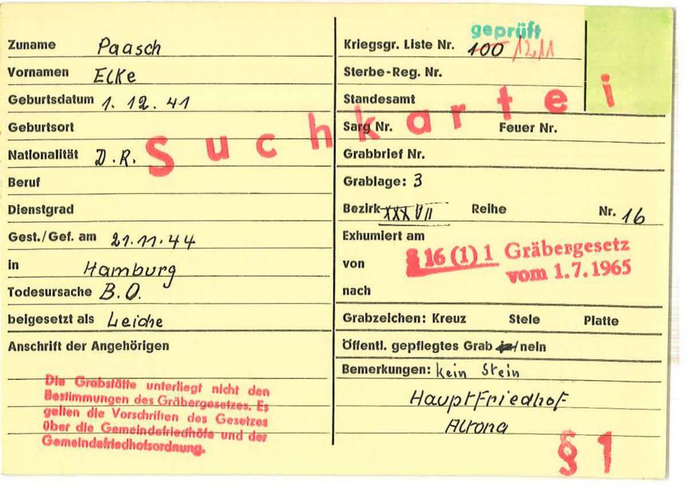 geprüft
Zuname Paasch
Vornamen Elke
Geburtsdatum 1. 12. 41
Geburtsort
Nationalität D.R.
Beruf
Dienstgrad
Gest./Gef. am 21.11.44
in Hamburg
Todesursache B.O.
beigesetzt als Leiche
Anschrift der Angehörigen
Die Grabstätte unterliegt nicht den
Bestimmungen des Gräbergesetzes. Es
gelten die Vorschriften des Gesetzes
über die Gemeindefriedhöfe und der
Gemeindefriedhofsordnung.
Suchkartei
Kriegsgr. Liste Nr. 100/1211
Sterbe-Reg. Nr.
Standesamt
Sarg Nr. Feuer Nr.
Grabbrief Nr.
Grablage: 3
Bezirk XXXVII Reihe Nr. 16
Exhumiert am
von
nach
§ 16 (1) 1 Gräbergesetz
vom 1.7.1965
Grabzeichen: Kreuz Stele Platte
Öffentl. gepflegtes Grab ja/nein
Bemerkungen: kein Stein
Hauptfriedhof
Altona
§ 1